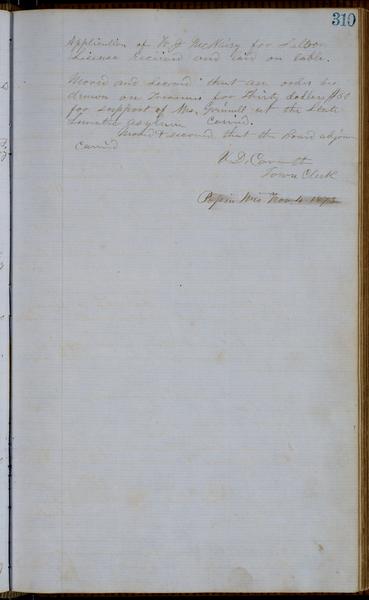 310
Application of W H for Saloon
License received and laid on table.
Moved and second that an order be
drawn on Treasurer for Thirty dollars $30
for support of Mrs. at the State
Lunatic Asylum Carried.
Moved & second that the Board adjourn
Carried
Town Clerk
Pepin Wis Nov 4